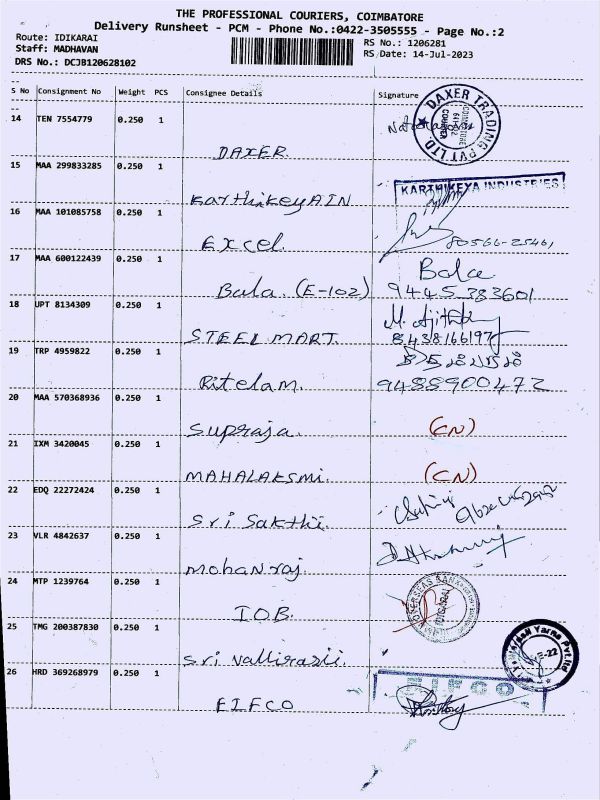 THE PROFESSIONAL COURIERS, COIMBATORE
Delivery Runsheet - PCM - Phone No.:0422-3505555 - Page No.:2
Route: IDIKARAI
RS No.: 1206281
Staff: MADHAVAN
RS Date: 14-Jul-2023
DRS No.: DCJB120628102
S No Consignment No Weight PCS Consignee Details Signature
14 TEN 7554779 0.250 1
DAXER TRADING PVT LTD
COIMBATORE
COURIER
DAXER
15 MAA 299833285 0.250 1
KARTHIKEYA INDUSTRIES
KarthikeyAIN
16 MAA 101085758 0.250 1
Excel 80566-25461
17 MAA 600122439 0.250 1
Bala
Bala (E-102) 9445383601
18 UPT 8134309 0.250 1
STEEL MART. 8438166197
19 TRP 4959822 0.250 1
Ritelam. 9488900472
20 MAA 570368936 0.250 1
Supraja. (CN)
21 IXM 3420045 0.250 1
MAHALAKSMI. (CN)
22 EDQ 22272424 0.250 1
Sri Sakthi.
23 VLR 4842637 0.250 1
Mohanraj
24 MTP 1239764 0.250 1
OVERSEAS BANK
IDIGARAI
I.O.B.
25 TMG 200387830 0.250 1
Yarns Pvt.ltd
Sri Vallirasii.
26 HRD 369268979 0.250 1
FIFCO
FIFCO